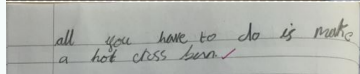 all you have to do is make
a hot cross bun